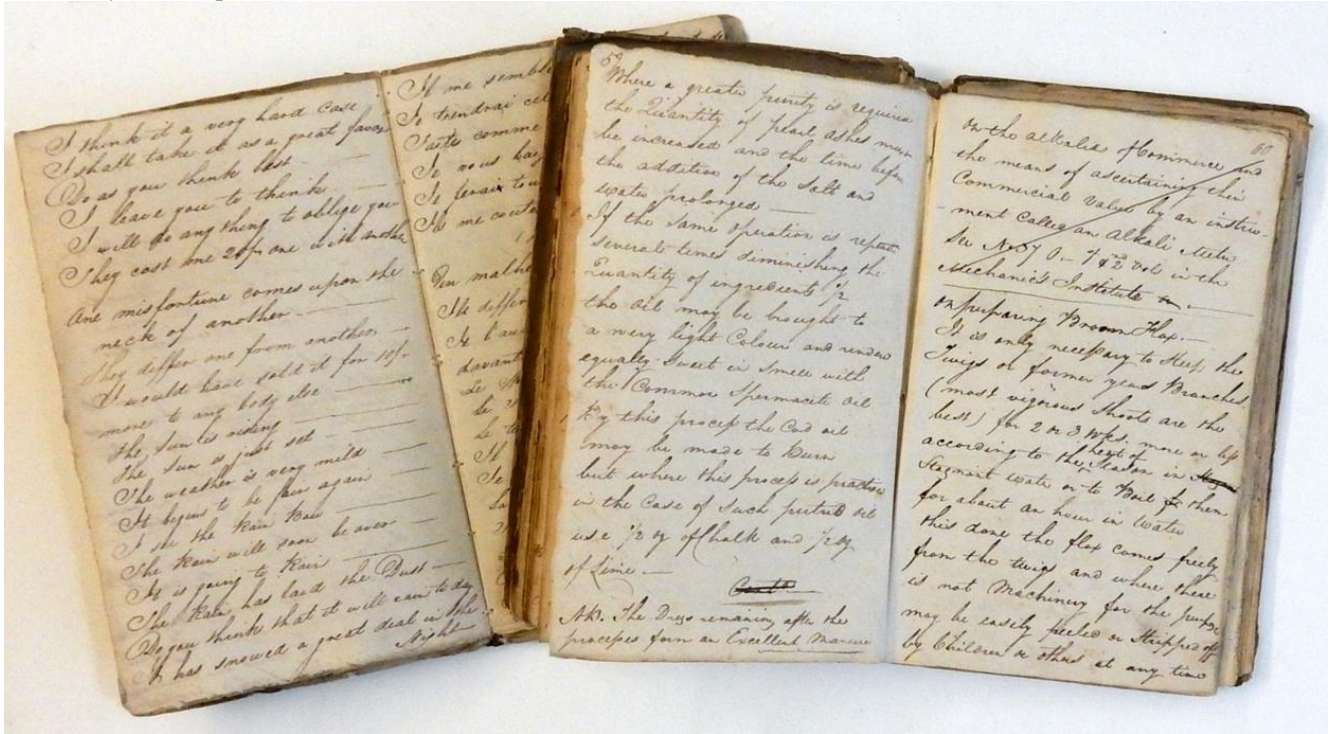 I think it a very hard Case
I shall take it as a great favor
Do as you think best
I leave you to think
I will do any thing to oblige you
They cost me 20/- one with another
One misfortune comes upon the
neck of another
They differ one from another
I would have sold it for 10/-
more to any body else
The Sun is rising
The Sun is just set
The weather is very mild
It begins to be fair again
I see the Rain Bow
The Rain will soon be over
It is going to Rain
The Rain has laid the Dust
Do you think that it will rain to day
It has snowed a great deal in the
Night
Il me semble
Je tiendrai
comme
Je vous
Je ferai
Ils me
Un malhe
Ils differ
davant
59
Where a greater purity is required
the Quantity of pearl ashes may
be increased and the time before
the addition of the Salt and
water prolonged
If the same operation is repeated
several times diminishing the
Quantity of ingredients 1/2
the oil may be brought to
a very light Colour and render
equally Sweet in Smell with
the Common Spermacete Oil
By this process the Cod oil
may be made to Burn
but where this process is practised
in the Case of Such putrid oil
use 1/2 oz of Chalk and 1/2 oz
of Lime
NB. The Dregs remaining after the
processes form an Excellent Manure
60
On the alkalis of Commerce and
the means of ascertaining their
Commercial Value by an instru-
-ment Called an Alkali Meter
See No 57 vol in the
Mechanic's Institute
On preparing Broom Flax.
It is only necessary to Steep the
Twigs or former years Branches
(most vigorous Shoots are the
best) for 2 or 3 Wks. more or less
according to the heat of Season in
Stagnant water or to Boil them
for about an hour in Water
this done the flax comes freely
from the twigs and where there
is not Machinery for the purpose
may be easily peeled or Stripped off
by Children or others at any time